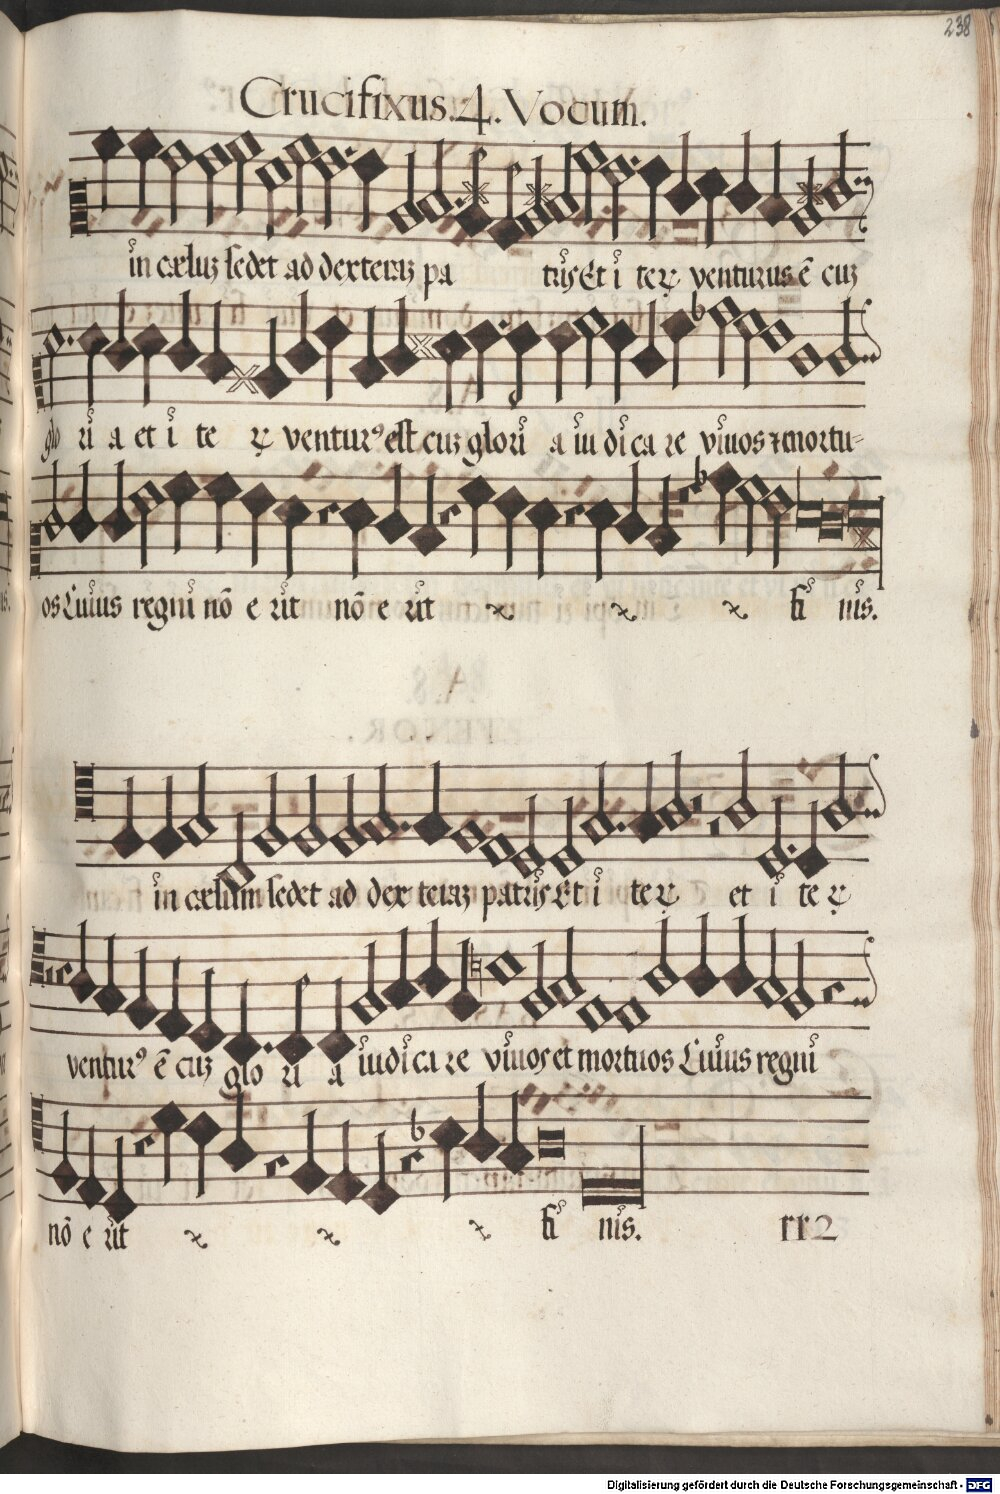 238
Crucifixus. 4. Vocum.
in cæluz sedet ad dexteraz pa triſ Et i teꝝ venturus ē cuz
glo ri a et i te ꝝ ventur⁹ est cuz glori a iu di ca re viuos ⁊ mortu=
os Cuius regni nō e rit nō e rit fi nis.
in cælum sedet ad dex teraz patriſ Et i te ꝝ et i te ꝝ
ventur⁹ ē cuz glo ri a iudi ca re viuos et mortuos Cuius regni
nō e rit fi nis. rr2
Digitalisierung gefördert durch die Deutsche Forschungsgemeinschaft - DFG